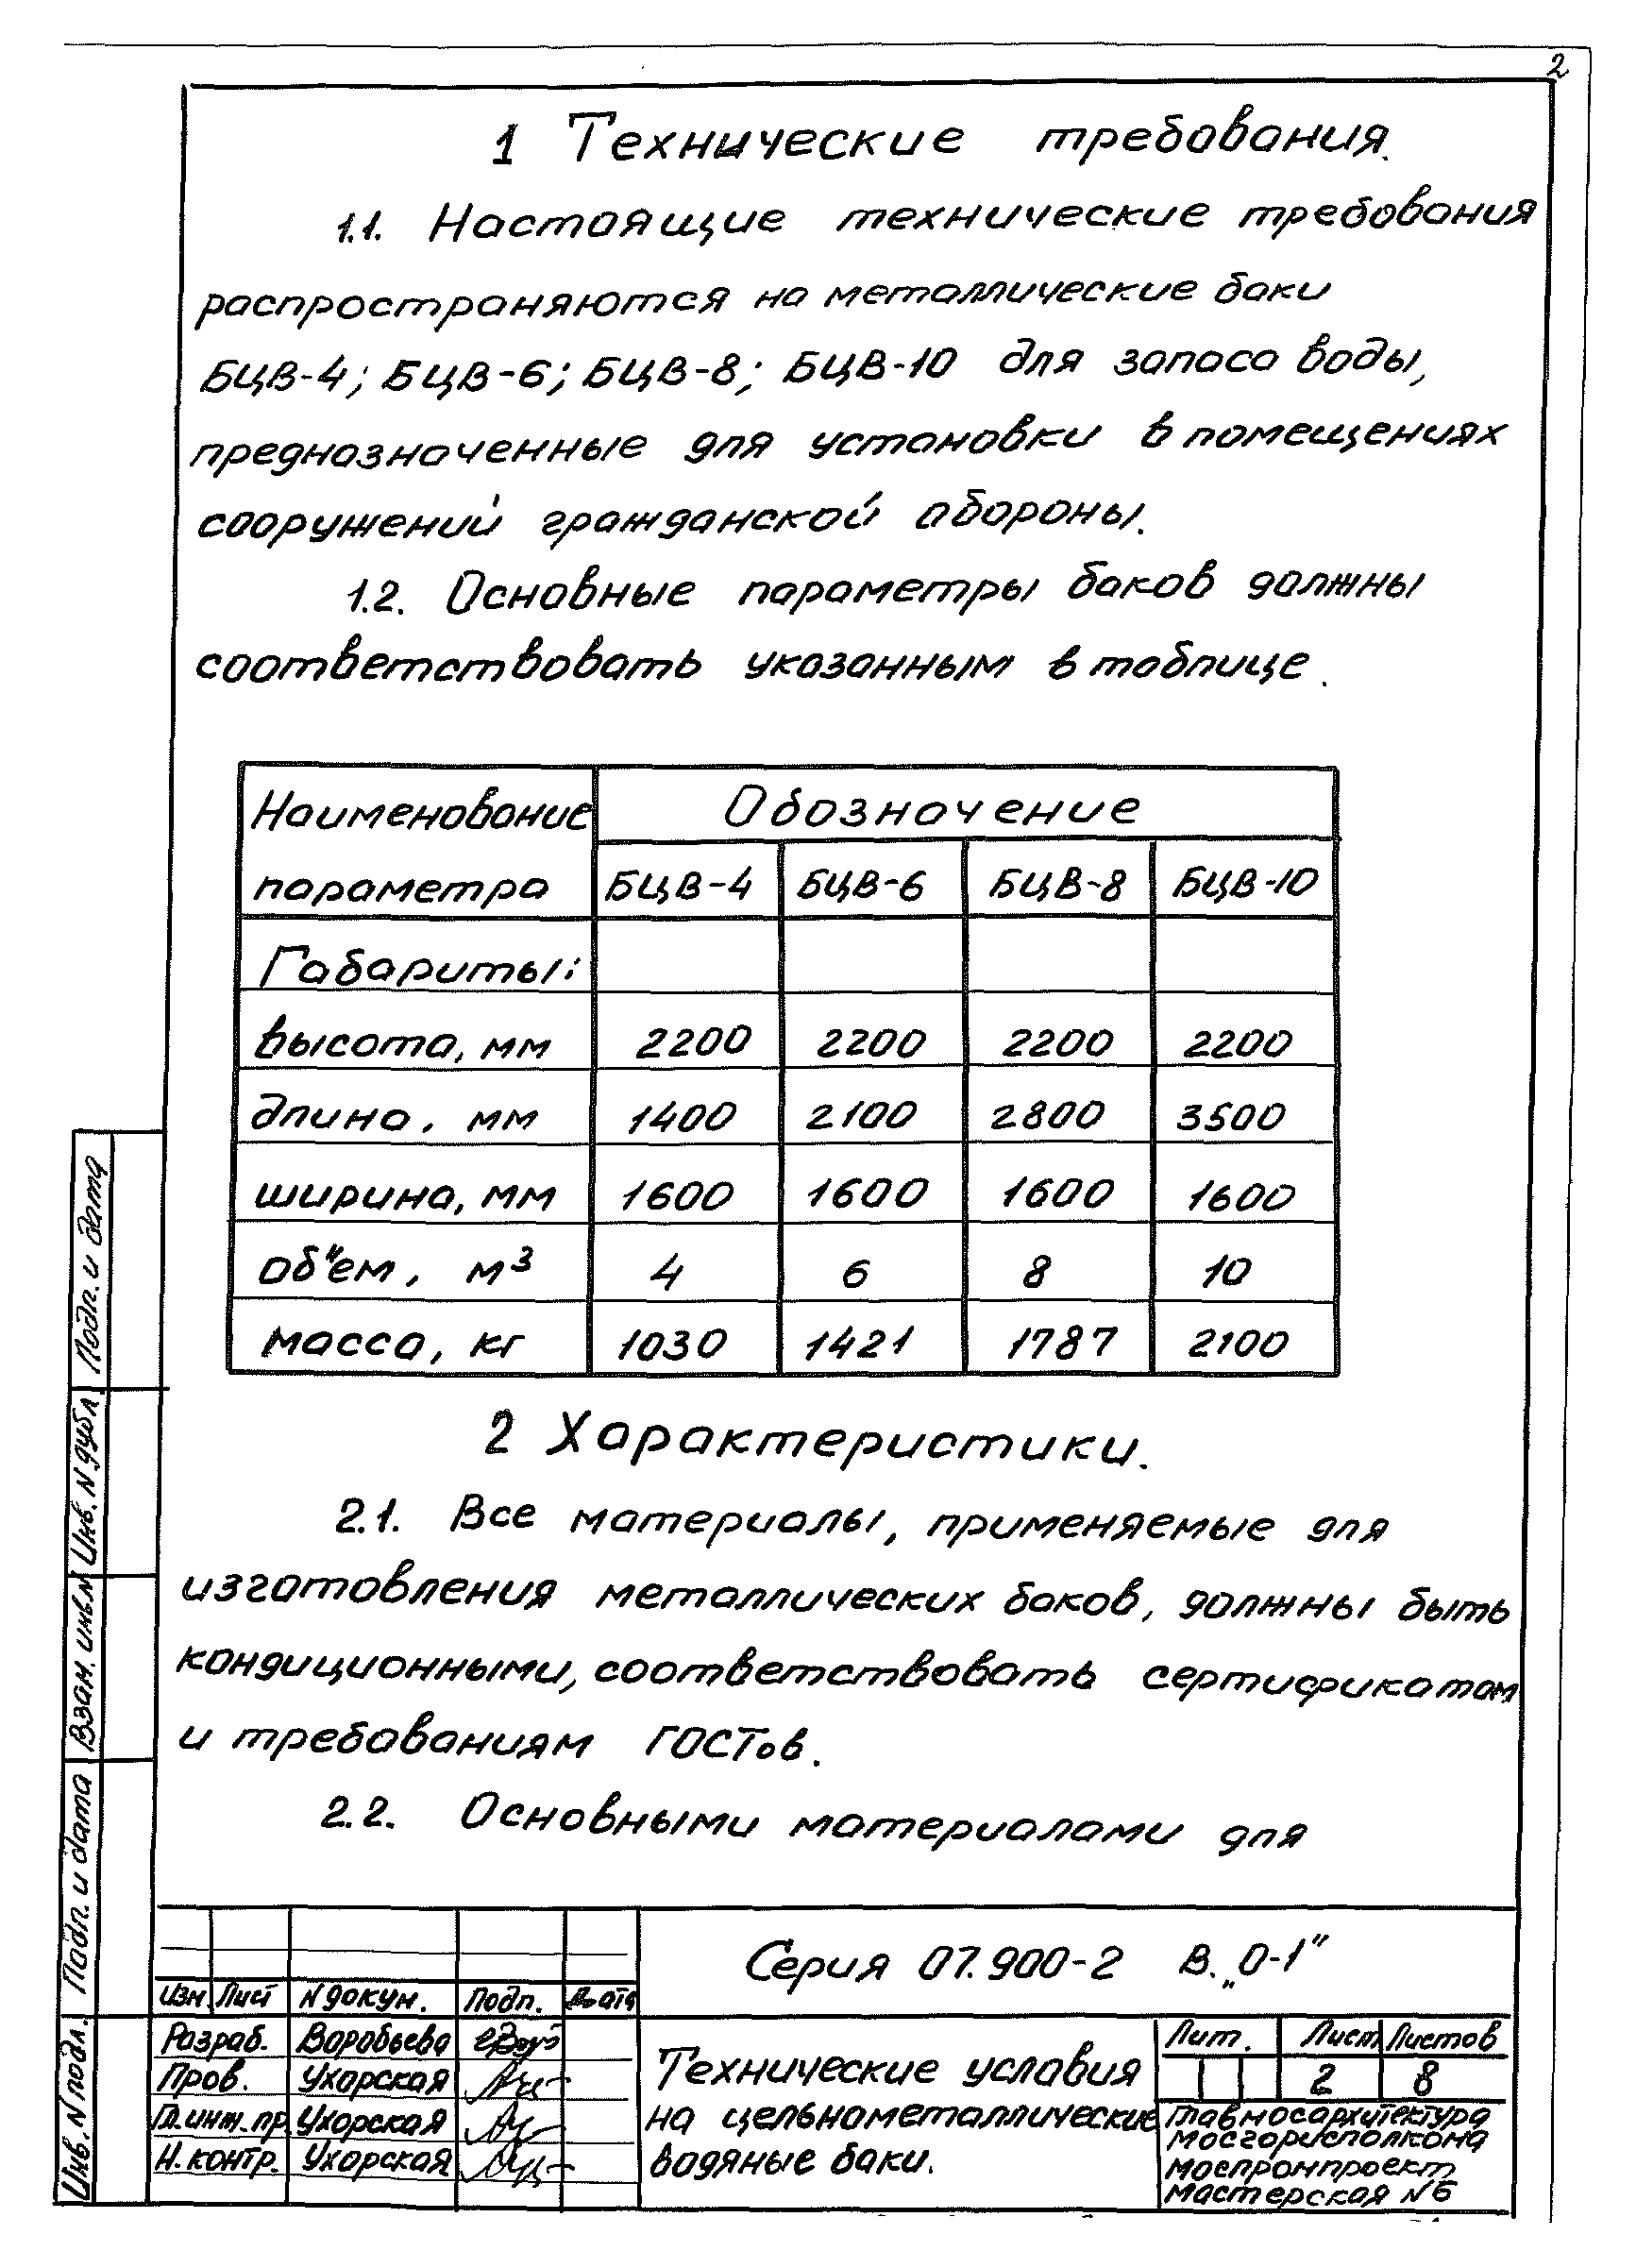 2
1 Технические требования.
1.1. Настоящие технические требования
распространяются на металлические баки
БЦВ-4; БЦВ-6; БЦВ-8; БЦВ-10 для запаса воды,
предназначенные для установки в помещениях
сооружений гражданской обороны.
1.2. Основные параметры баков должны
соответствовать указанным в таблице.
Наименование Обозначение
параметра БЦВ-4 БЦВ-6 БЦВ-8 БЦВ-10
Габариты:
высота, мм 2200 2200 2200 2200
длина, мм 1400 2100 2800 3500
ширина, мм 1600 1600 1600 1600
об"ем, м³ 4 6 8 10
масса, кг 1030 1421 1787 2100
2 Характеристики.
2.1. Все материалы, применяемые для
изготовления металлических баков, должны быть
кондиционными, соответствовать сертификатам
и требованиям ГОСТов.
2.2. Основными материалами для
Подп. и дата
Инв. N дубл.
Взам. инв. N
Подп. и дата
Инв. N подл.
Изм. Лист N докум. Подп. Дата
Разраб. Воробьева
Пров. Ухорская
Гл. инж. пр. Ухорская
Н. контр. Ухорская
Серия 07.900-2 В. „0-1"
Технические условия
на цельнометаллические
водяные баки.
Лит. Лист Листов
2 8
Главмосархитектура
мосгорисполкома
моспромпроект
мастерская N6